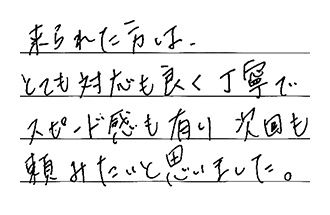 来られた方は、
とても対応も良く丁寧で
スピード感も有り 次回も
頼みたいと思いました。